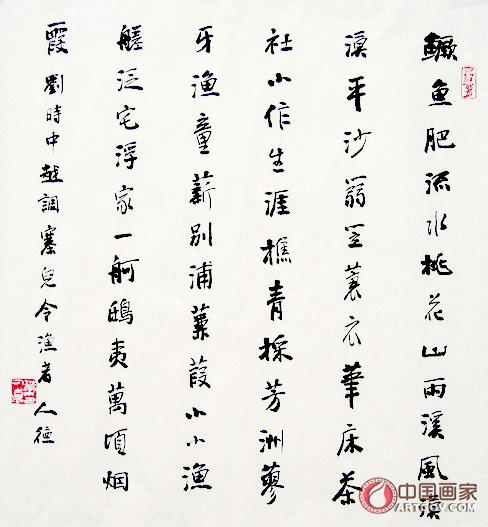 鱖魚肥流水桃花山雨溪風漠
漠平沙篛笠蓑衣筆床茶
灶小作生涯樵青採芳洲蓼
牙漁童薪別浦蒹葭小小漁
艖泛宅浮家一舸鴟夷萬頃烟
霞 劉時中越調寨兒令漁者人德
中国画家
ARTGOV.COM